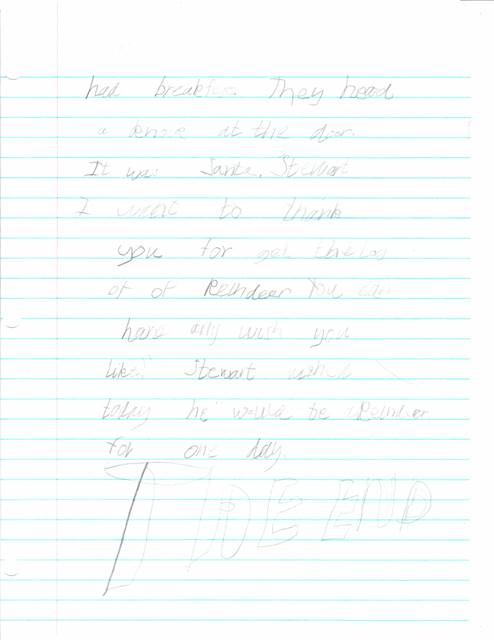 had breakfes. They head
a at the door.
It was Santa. Stewart
I want to thank
you for
of of Reindeer You can
have any wish you
like!" Stewart
today he would be a Reindeer
for one day.
THE END